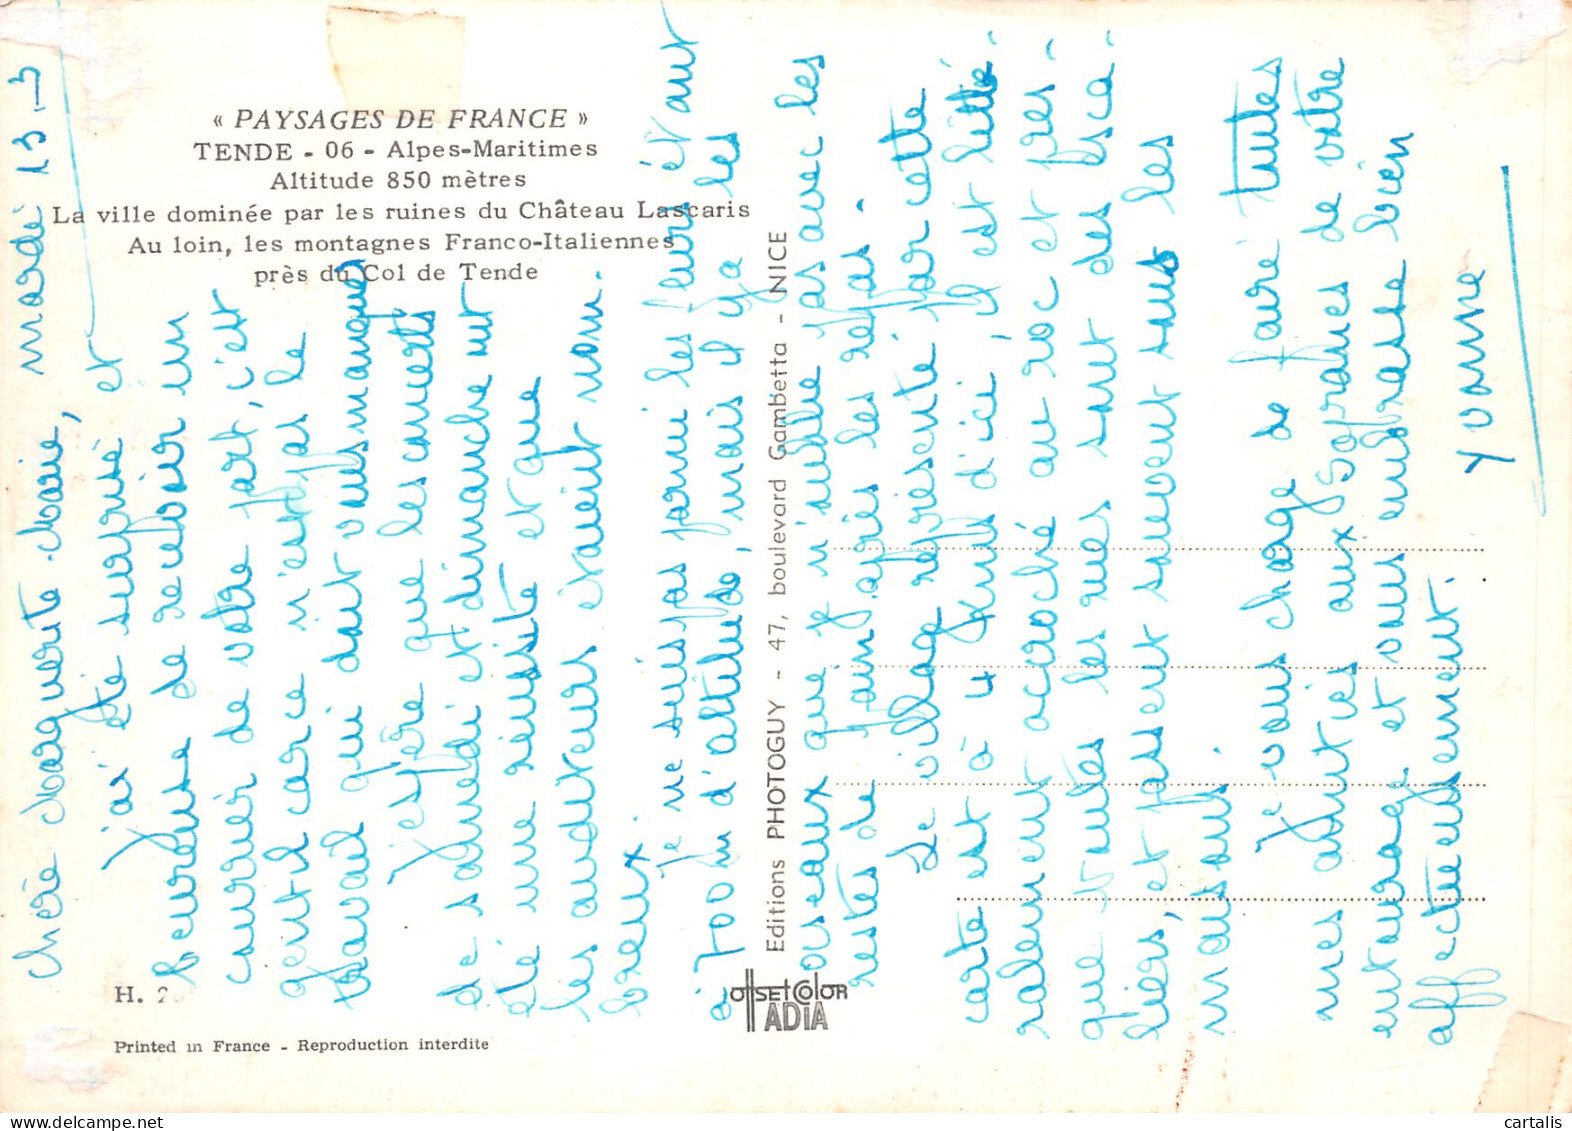 « PAYSAGES DE FRANCE »
TENDE - 06 - Alpes-Maritimes
Altitude 850 mètres
La ville dominée par les ruines du Château Lascaris
Au loin, les montagnes Franco-Italiennes
près du Col de Tende
H. 2
Printed in France - Reproduction interdite
Editions PHOTOGUY - 47, boulevard Gambetta - NICE
OffSET COlOR
ADiA
mardi 13-3
Chère Marguerite-Marie,
j'ai été surprise et
heureuse de recevoir un
courrier de votre part, c'est
gentil car ce n'est pas le
travail qui doit vous manquer
J'espère que les concerts
de samedi et dimanche ont
été une réussite et que
les auditeurs étaient nom-
breux.
Je ne suis pas parmi les fleurs étant
à 700m d'altitude, mais il y a les
oiseaux que je n'oublie pas avec les
restes de pain, après les repas.
Le village représenté par cette
carte est à 4 kms d'ici, il est litté-
ralement accroché au roc et pres-
que toutes les rues sont des esca-
liers, et passent souvent sous les
maisons.
Je vous charge de faire toutes
mes amitiés aux Sopranes de votre
entourage et vous embrasse bien
affectueusement.
Yvonne
cartalis